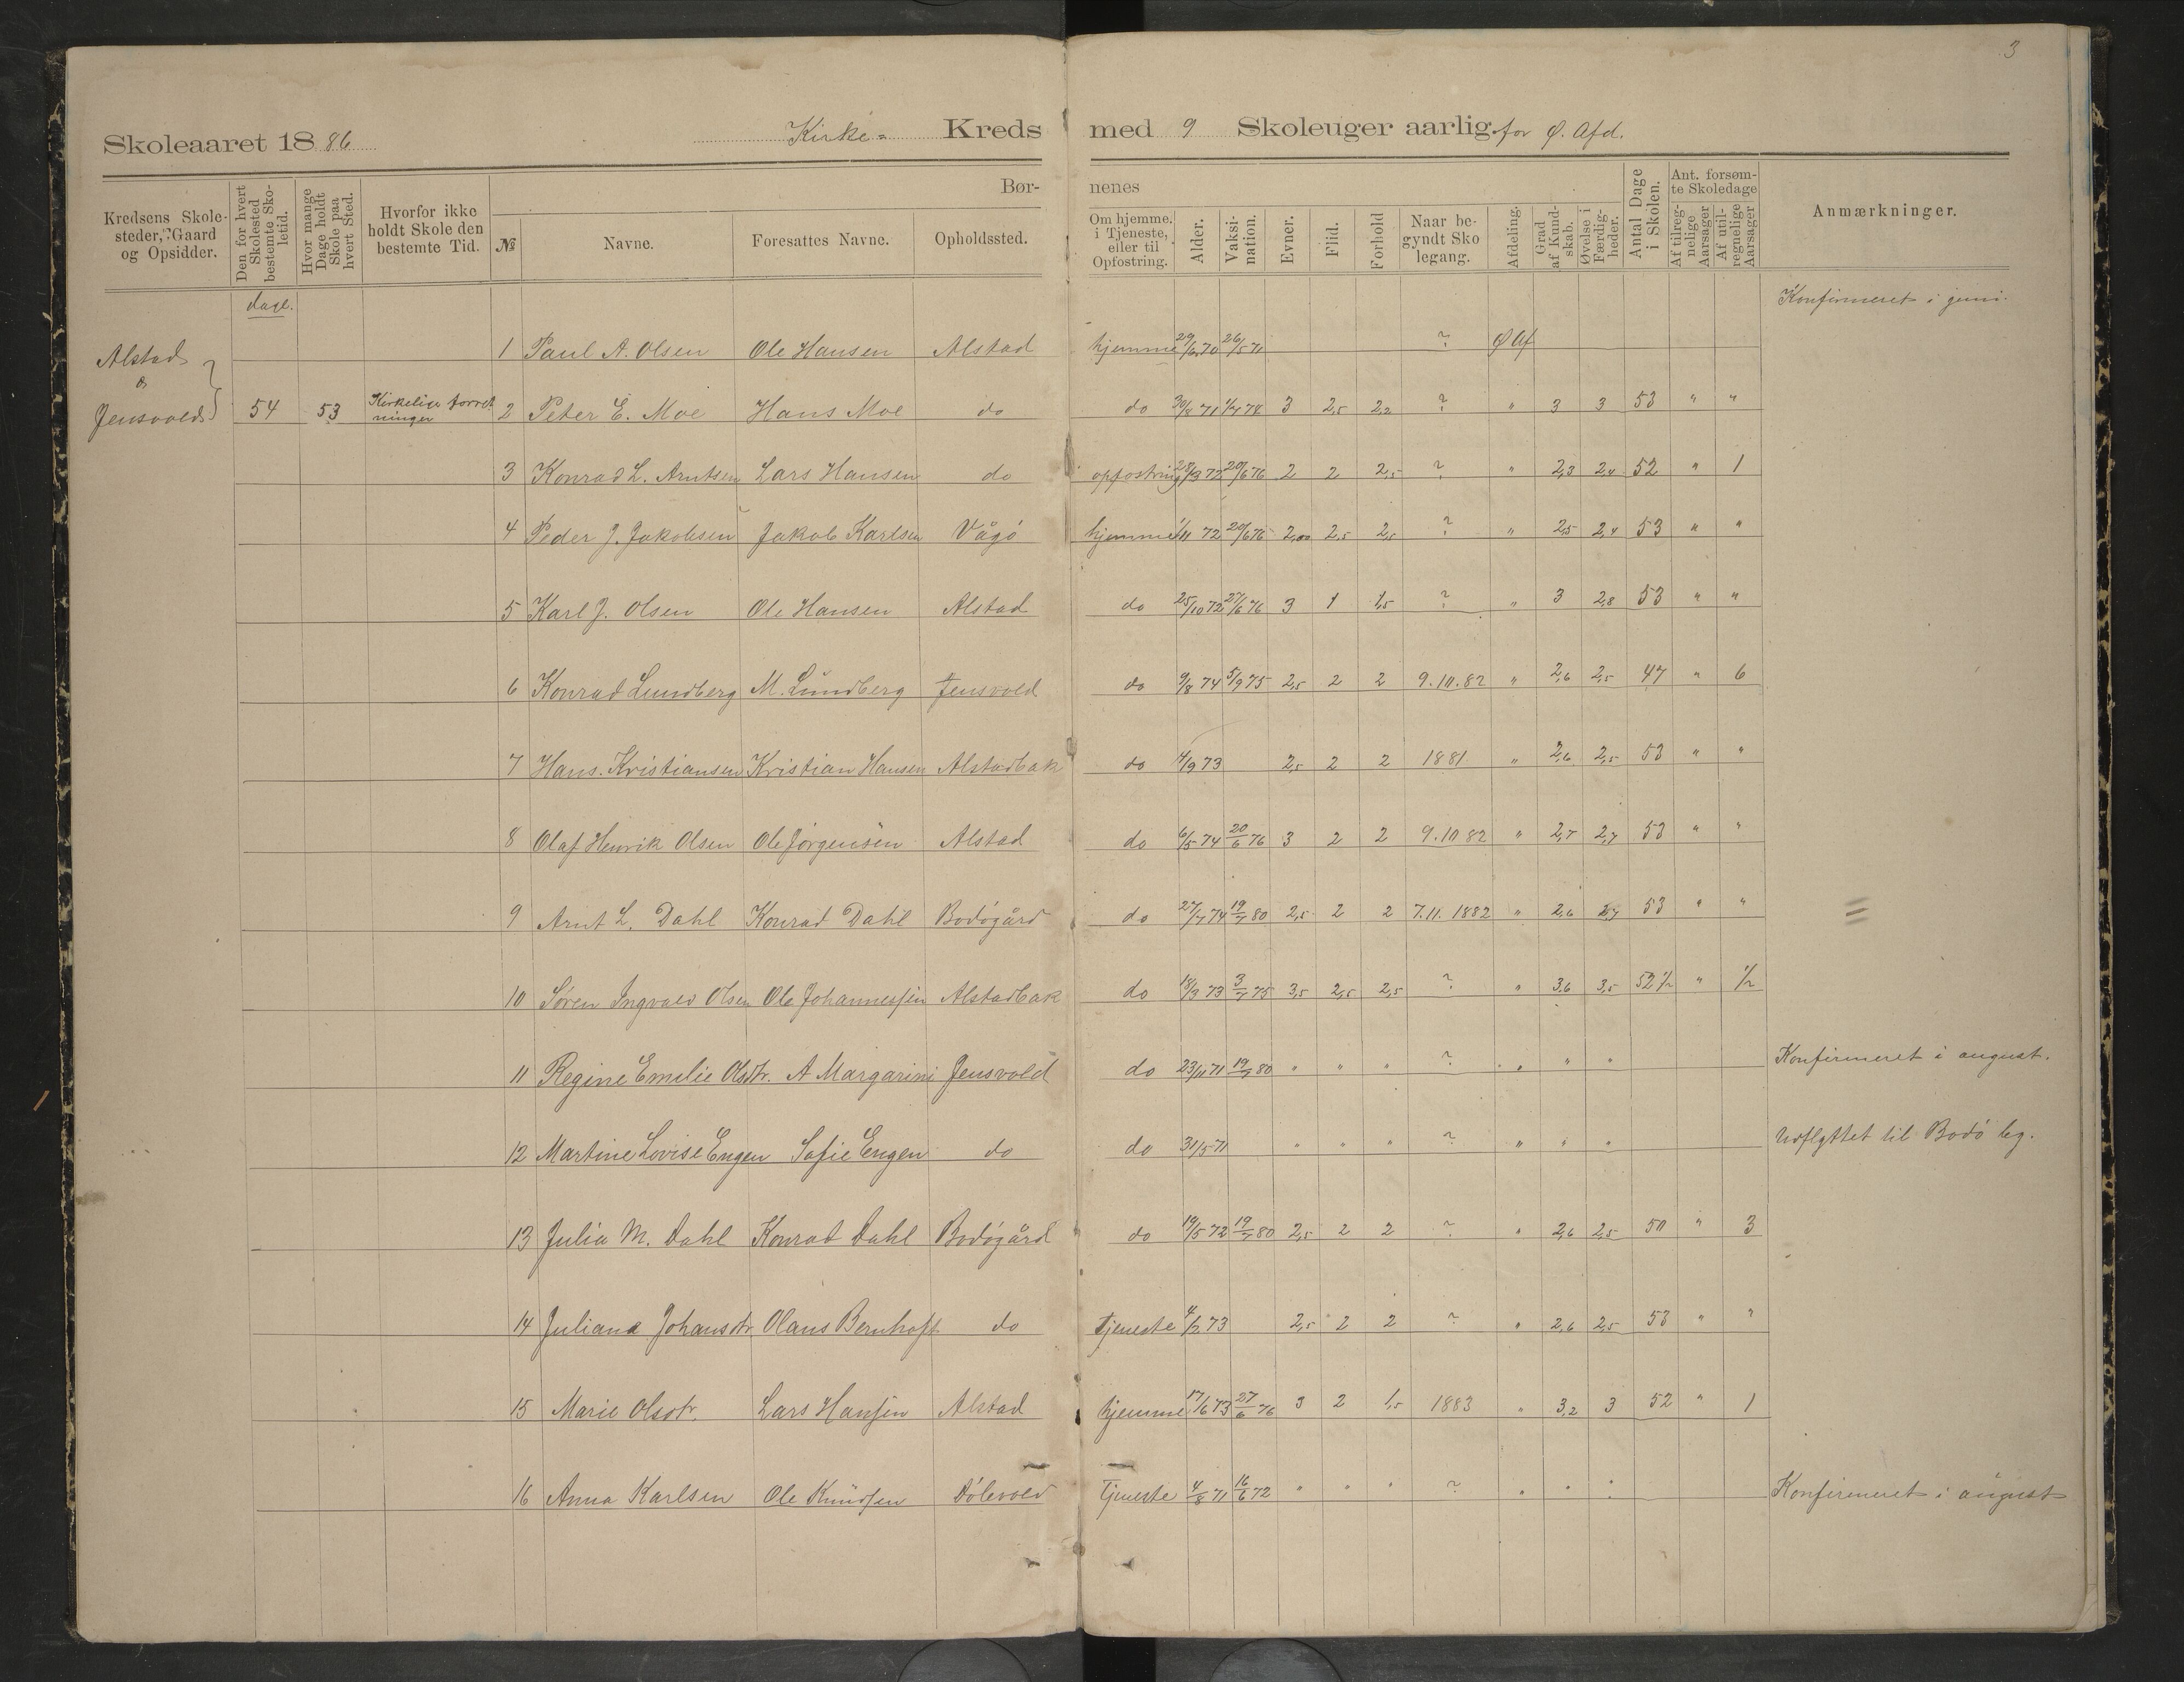 3
Skoleaaret 1886 Kirke= Kreds med 9 Skoleuger aarlig for Ø. Afd.
Kredsens Skolesteder, Gaard og Opsidder.
Den for hvert Skolested bestemte Skoletid.
Hvor mange Dage holdt Skole paa hvert Sted.
Hvorfor ikke holdt Skole den bestemte Tid.
Børnenes
№ Navne. Foresattes Navne. Opholdssted.
Om hjemme, i Tjeneste, eller til Opfostring.
Alder. Vaksination. Evner. Flid. Forhold
Naar begyndt Skolegang.
Afdeling. Grad af Kundskab. Øvelse i Færdigheder.
Antal Dage i Skolen.
Ant. forsømte Skoledage
Af tilregnelige Aarsager
Af utilregnelige Aarsager
Anmærkninger.
dage.
Konfirmeret i juni.
1 Paul A. Olsen Ole Hansen Alstad hjemme 29/6 70 26/5 71 ? Ø Af
Alstad
&
Jensvold 54 53 Kirkelige forretninger 2 Peter E. Moe Hans Moe do do 30/8 71 1/7 78 3 2,5 2,2 ? " 3 3 53 " "
3 Konrad L. Arntsen Lars Hansen do opfostring 28/3 72 20/6 76 2 2 2,5 ? " 2,3 2,4 52 " 1
4 Peder J. Jakobsen Jakob Karlsen Vågö hjemme 1/11 72 20/6 76 2,00 2,5 2,5 ? " 2,5 2,4 53 " "
5 Karl J. Olsen Ole Hansen Alstad do 25/10 72 27/6 76 3 1 1,5 ? " 3 2,8 53 " "
6 Konrad Lundberg M. Lundberg Jensvold do 9/8 74 5/9 75 2,5 2 2 9.10.82 " 2,6 2,5 47 " 6
7 Hans. Kristiansen Kristian Hansen Alstadbak do 4/9 73 2,5 2 2 1881 " 2,6 2,5 53 " "
8 Olaf Henrik Olsen Ole Jörgensen Alstad do 6/5 74 20/6 76 3 2 2 9.10 82 " 2,7 2,7 53 " "
9 Arnt L. Dahl Konrad Dahl Bodögård do 27/7 74 19/7 80 2,5 2 2 7.11.1882 " 2,6 2,7 53 " "
10 Sören Ingvald Olsen Ole Johannessen Alstadbak do 18/3 73 3/7 75 3,5 2,5 2,5 ? " 3,6 3,5 52 1/2 " 1/2
11 Regine Emilie Olsdtr. A Margarini Jensvold do 23/11 71 19/7 80 " " " ? " " " Konfirmeret i august.
12 Martine Lovise Engen Sofie Engen do do 31/5 71 " " " ? " " " Udflyttet til Bodö by.
13 Julia M. Dahl Konrad Dahl Bodögård do 19/5 72 19/7 80 2,5 2 2 ? " 2,6 2,5 50 " 3
14 Juliana Johansdtr. Olaus Bernhoft do Tjeneste 4/2 73 2,5 2 2 ? " 2,6 2,5 53 " "
15 Marie Olsdtr. Lars Hansen Alstad hjemme 17/6 73 27/6 76 3 2 1,5 1883 " 3,2 3 52 " 1
16 Anna Karlsen Ole Knudsen Dölevold Tjeneste 4/8 71 16/6 72 " " " ? " " " Konfirmeret i august